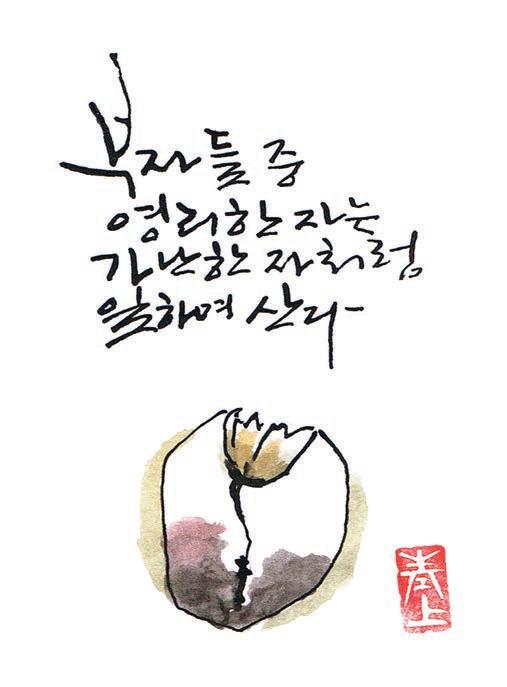 부자들 중
영리한 자는
가난한 자처럼
일하며 산다
上